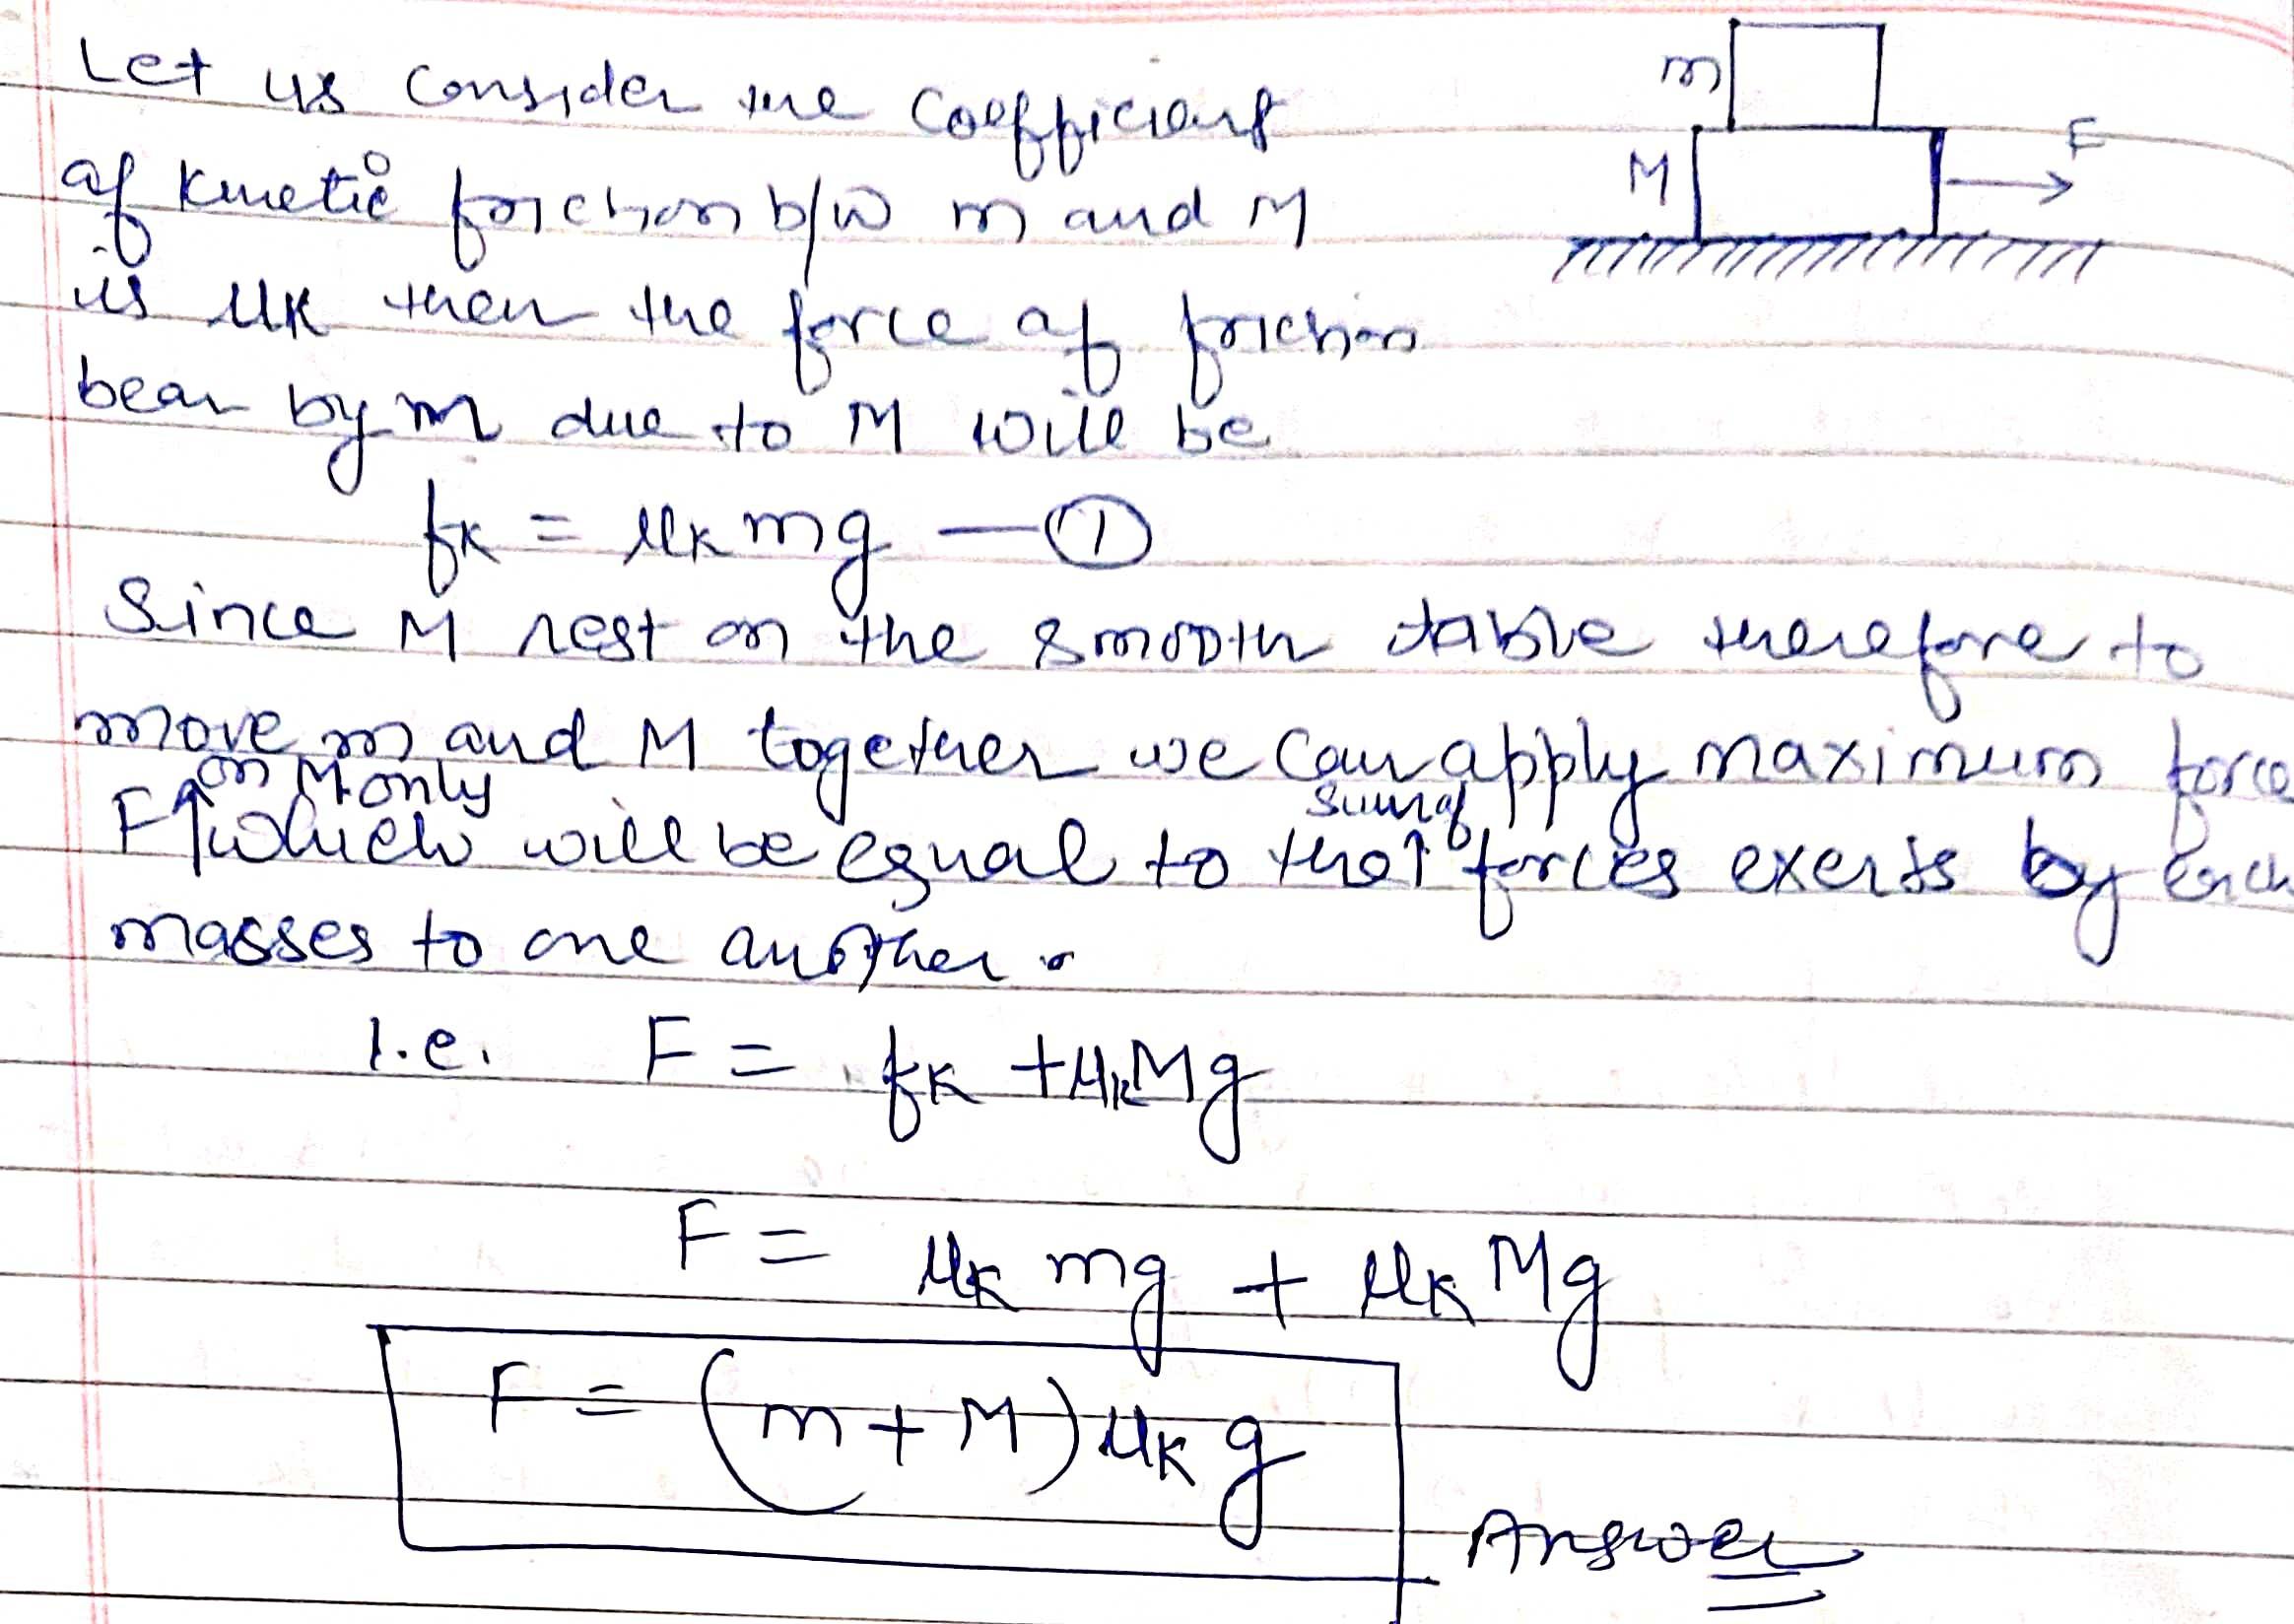 Let us consider the coefficient
m
F
of kinetic friction b/w m and M
M
is μK then the force of friction
bear by m due to M will be
fK = μK mg — ①
Since M rest on the smooth table therefore to
move m and M together we can apply maximum force
on M only
sum of
F which will be equal to the forces exerts by each
masses to one another.
I.e. F = fK + μK Mg
F = μK mg + μK Mg
F = (m + M) μK g
Answer